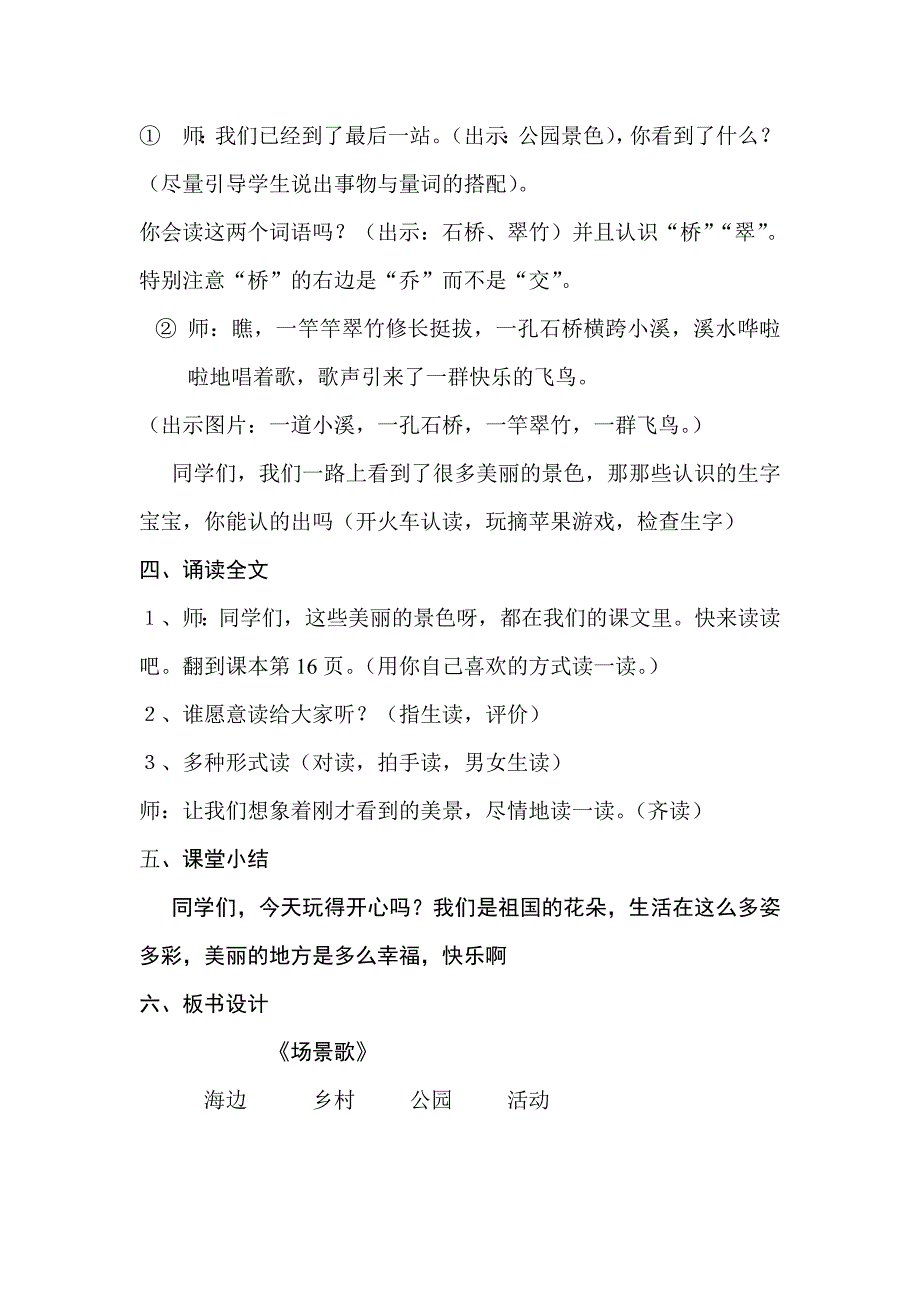 ①　师：我们已经到了最后一站。（出示：公园景色），你看到了什么？
（尽量引导学生说出事物与量词的搭配）。
你会读这两个词语吗？（出示：石桥、翠竹）并且认识“桥”“翠”。
特别注意“桥”的右边是“乔”而不是“交”。
② 师：瞧，一竿竿翠竹修长挺拔，一孔石桥横跨小溪，溪水哗啦
啦地唱着歌，歌声引来了一群快乐的飞鸟。
（出示图片：一道小溪，一孔石桥，一竿翠竹，一群飞鸟。）
同学们，我们一路上看到了很多美丽的景色，那那些认识的生字
宝宝，你能认的出吗（开火车认读，玩摘苹果游戏，检查生字）
四、诵读全文
１、师：同学们，这些美丽的景色呀，都在我们的课文里。快来读读
吧。翻到课本第 16 页。（用你自己喜欢的方式读一读。）
２、谁愿意读给大家听？（指生读，评价）
３、多种形式读（对读，拍手读，男女生读）
师：让我们想象着刚才看到的美景，尽情地读一读。（齐读）
五、课堂小结
同学们，今天玩得开心吗？我们是祖国的花朵，生活在这么多姿
多彩，美丽的地方是多么幸福，快乐啊
六、板书设计
《场景歌》
海边　　　乡村　　　公园　　　活动